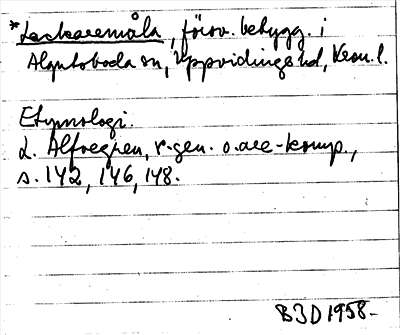 *Lackaremåla, försv. bebygg. i
Algutsboda sn, Uppvidinge hd, Kron. l.
Etymologi.
L. Alfvegren, r-gen. o. are-komp.,
s. 142, 146, 148.
BJD 1958-